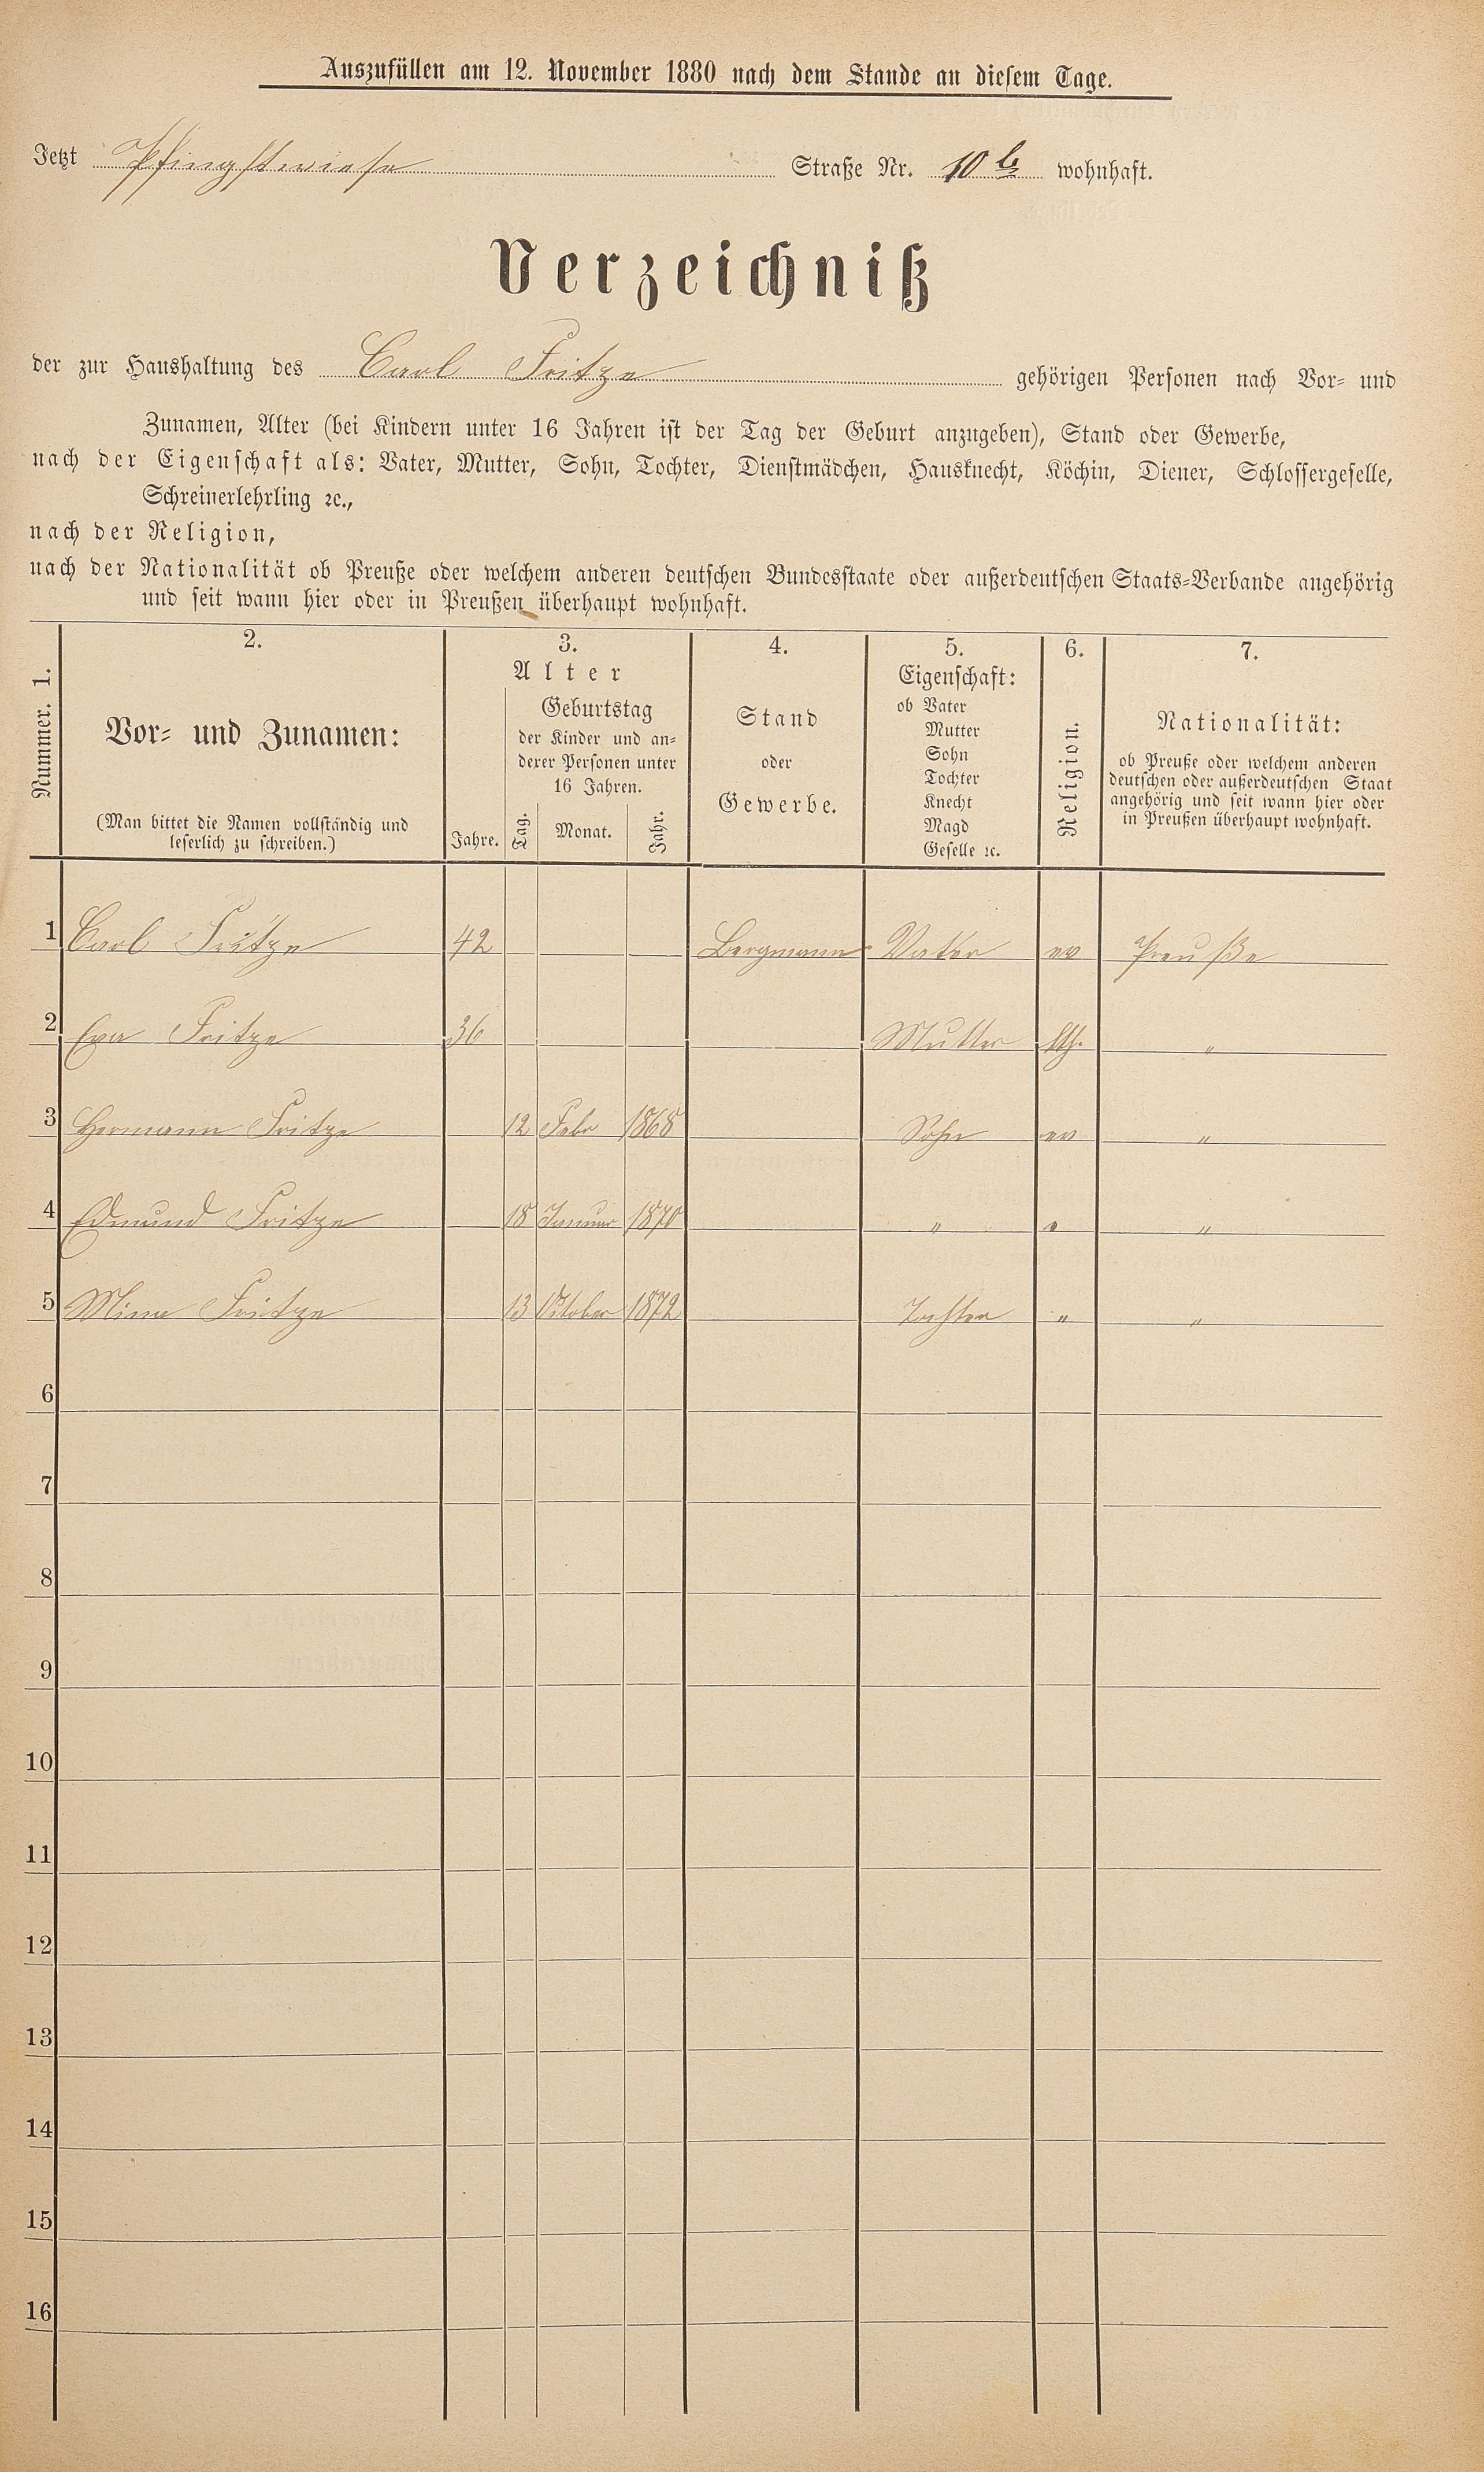 Auszufüllen am 12. November 1880 nach dem Stande an diesem Tage.
Jetzt Pfingstwiese Straße Nr. 10 b wohnhaft.
Verzeichniß
der zur Haushaltung des Carl Fritze gehörigen Personen nach Vor- und
Zunamen, Alter (bei Kindern unter 16 Jahren ist der Tag der Geburt anzugeben), Stand oder Gewerbe,
nach der Eigenschaft als: Vater, Mutter, Sohn, Tochter, Dienstmädchen, Hausknecht, Köchin, Diener, Schlossergeselle,
Schreinerlehrling ꝛc.,
nach der Religion,
nach der Nationalität ob Preuße oder welchem anderen deutschen Bundesstaate oder außerdeutschen Staats-Verbande angehörig
und seit wann hier oder in Preußen überhaupt wohnhaft.
Nummer. 1.
2.
Vor- und Zunamen:
(Man bittet die Namen vollständig und
leserlich zu schreiben.)
3.
Alter
Jahre.
Geburtstag
der Kinder und an-
derer Personen unter
16 Jahren.
Tag. Monat. Jahr.
4.
Stand
oder
Gewerbe.
5.
Eigenschaft:
ob Vater
Mutter
Sohn
Tochter
Knecht
Magd
Geselle ꝛc.
6.
Religion.
7.
Nationalität:
ob Preuße oder welchem anderen
deutschen oder außerdeutschen Staat
angehörig und seit wann hier oder
in Preußen überhaupt wohnhaft.
1 Carl Fritze 42 Bergmann Vater ev Preuße
2 Eva Fritze 36 Mutter "
3 Hermann Fritze 12 Febr 1868 Sohn ev "
4 Edmund Fritze 18 Januar 1870 " " "
5 Mina Fritze 13 October 1872 Tochter " "
6
7
8
9
10
11
12
13
14
15
16